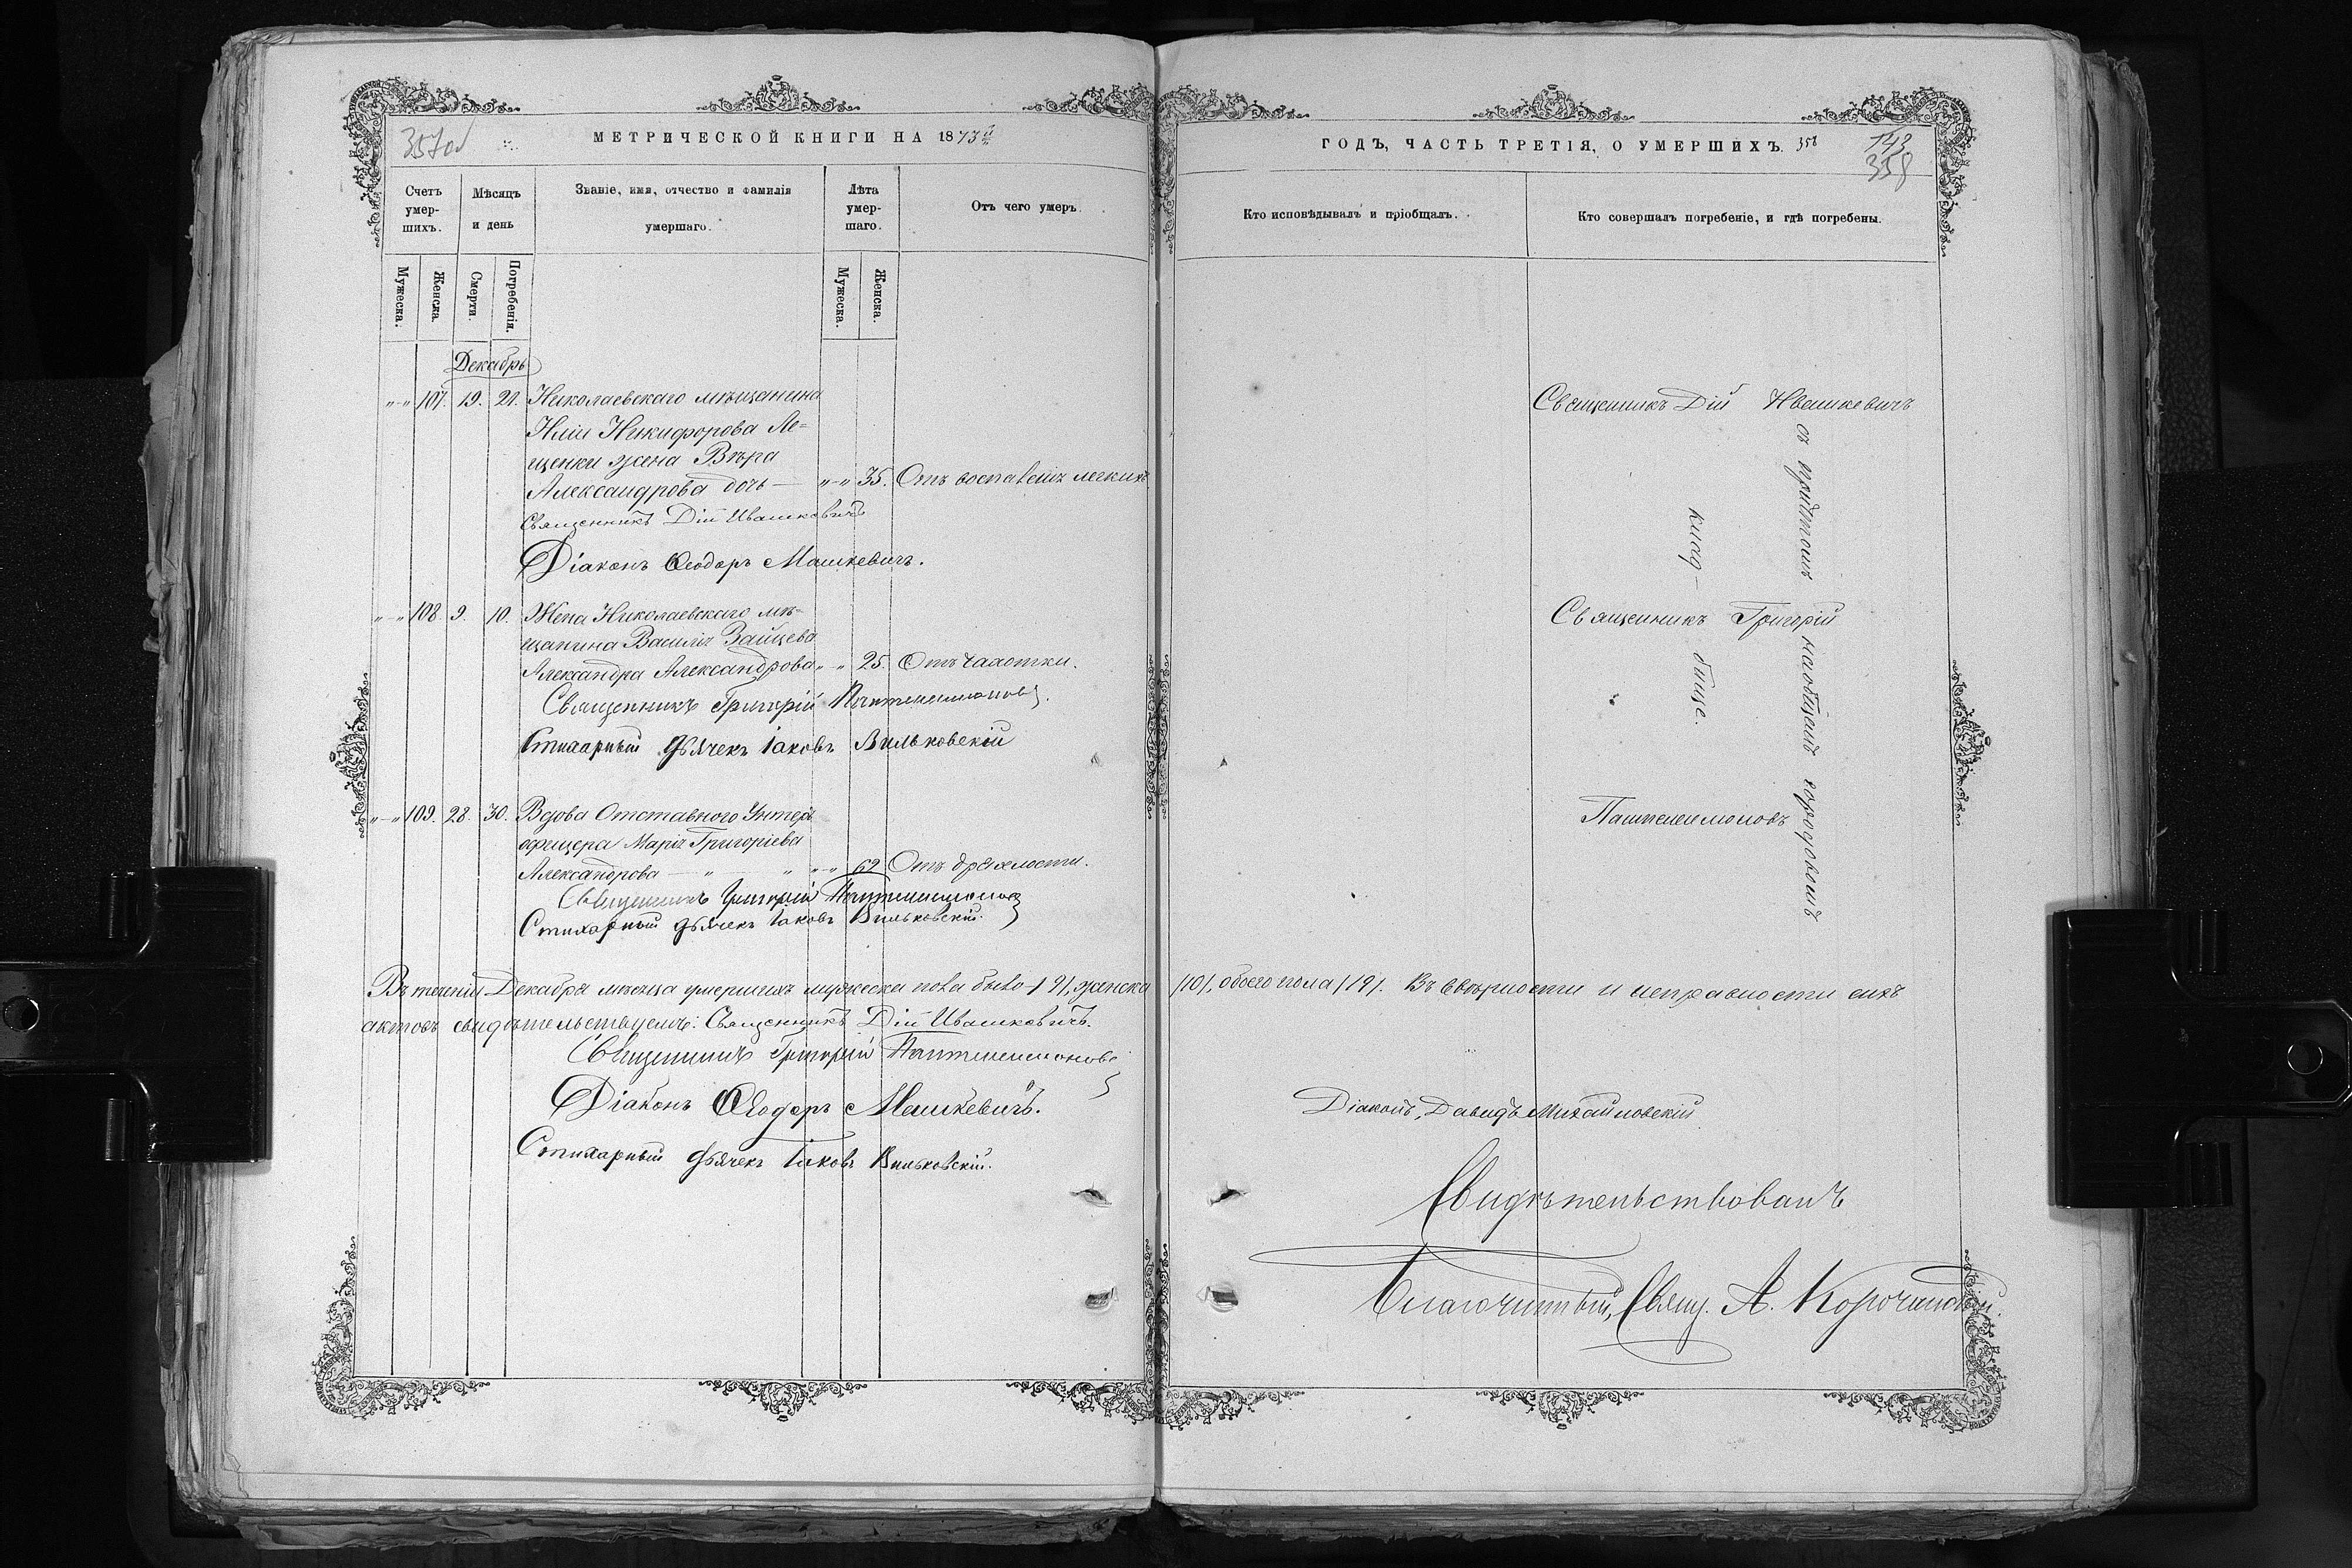 357об
МЕТРИЧЕСКОЙ КНИГИ НА 1873й
Счетъ умер-шихъ.
Мѣсяцъ и день
Званіе, имя, отчество и фамилія умершаго.
Лѣта умер-шаго.
Отъ чего умеръ.
Мужеска.
Женска.
Смерти.
Погребенія.
Мужеска.
Женска.
Декабрь
"-" 107. 19. 21. Николаевскаго мѣщанина
Иліи Никифорова Ле=
щенки жена Вѣра
Александрова дочь — "-" 35. Отъ воспаленія легкихъ
Священникъ Дій Ивашкевичъ
Діаконъ Ѳеодоръ Машкевичъ.
"-" 108 9. 10. Жена Николаевскаго мѣ-
щанина Василія Зайцева
Александра Александрова "-" 25. Отъ чахотки.
Священникъ Григорій Пантелеимоновъ.
Стихарный дьячекъ Іаковъ Вильковскій
"-" 109. 28. 30. Вдова Отставного Унтеръ
офицера Марія Григоріева
Александрова — " " "-" 62 Отъ дряхлости.
Священникъ Григорій Пантелеимоновъ
Стихарный дьячекъ Іаковъ Вильковскій.
Въ теченіи Декабря мѣсяца умершихъ мужеска пола было /9/, женска
актовъ свидѣтельствуемъ: Священникъ Дій Ивашкевичъ.
Священникъ Григорій Пантелеимоновъ
Діаконъ Ѳеодоръ Машкевичъ.
Стихарный дьячекъ Іаковъ Вильковскій.
ГОДЪ, ЧАСТЬ ТРЕТІЯ, О УМЕРШИХЪ. 358
143
358
Кто исповѣдывалъ и пріобщалъ.
Кто совершалъ погребеніе, и гдѣ погребены.
Священникъ Дій Ивашкевичъ
съ причтомъ на общемъ городовомъ
клад-бище.
Священникъ Григорій
Пантелеимоновъ
/10/, обоего пола /19/. Въ вѣрности и исправности сихъ
Діаконъ, Давидъ Михайловскій
Свидѣтельствовалъ
Благочинный, Свящ. А. Корочанскій.